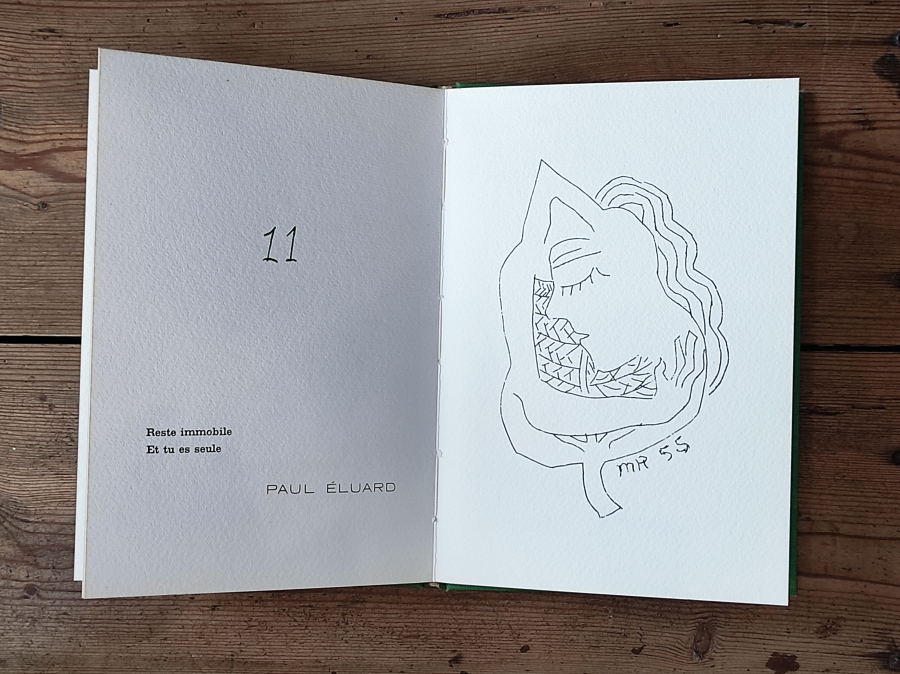 11
Reste immobile
Et tu es seule
PAUL ÉLUARD
MR 55